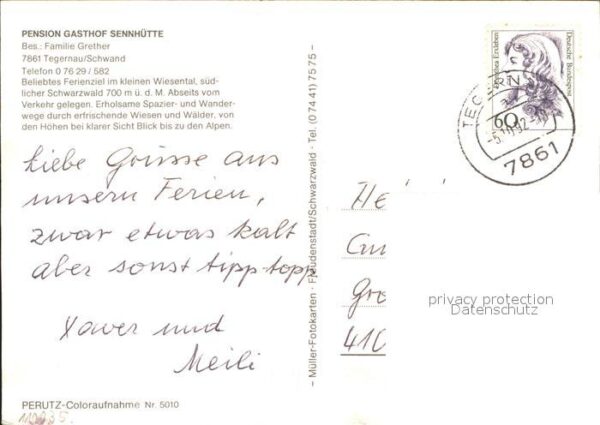 PENSION GASTHOF SENNHÜTTE
Bes.: Familie Grether
7861 Tegernau/Schwand
Telefon 0 76 29 / 582
Beliebtes Ferienziel im kleinen Wiesental, süd-
licher Schwarzwald 700 m ü. d. M. Abseits vom
Verkehr gelegen. Erholsame Spazier- und Wander-
wege durch erfrischende Wiesen und Wälder, von
den Höhen bei klarer Sicht Blick bis zu den Alpen.
Liebe Grüsse aus
unsern Ferien,
zwar etwas kalt
aber sonst tipp-topp
Xaver und
Meili
PERUTZ-Coloraufnahme Nr. 5010
– Müller-Fotokarten · Freudenstadt/Schwarzwald · Tel. (0 74 41) 75 75 –
Dorothea Erxleben
Deutsche Bundespost
60
7861
He
Gre
410
privacy protection
Datenschutz